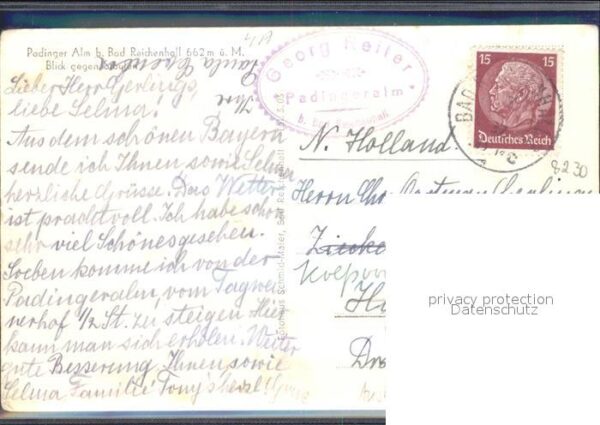 4A
Padinger Alm b. Bad Reichenhall 662 m ü. M.
Blick gegen
Lieber Herr Gerlings,
liebe Selma!
Aus dem schönen Bayern
sende ich Ihnen sowie Selma
herzliche Grüsse. Das Wetter
ist prachtvoll. Ich habe schon
sehr viel Schönes gesehen.
Soeben komme ich von der
Padingeralm, vom Tagwei
nerhof 1/2 St. zu steigen. Hier
kann man sich erholen. Weiter
gute Besserung, Ihnen sowie
Selma Familie Tony's herzl. Grüsse
Ihre
Georg Reiter
Padingeralm
b. Bad Reichenhall
15 15
Deutsches Reich
BAD
8230
N. Holland.
Herrn Chr.
privacy protection
Datenschutz